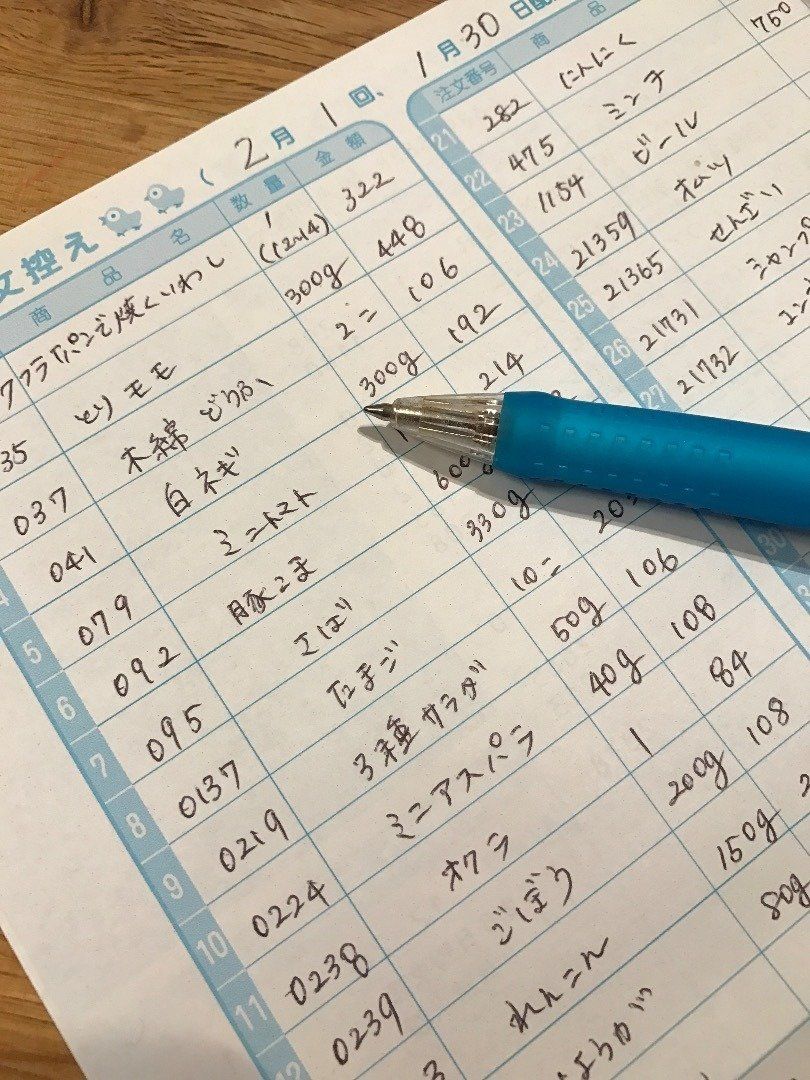 文控え ( 2月 1回、 1月30日配
商品名 数量 金額
フライパンで焼くいわし 1 (12~14) 322
35 とりモモ 300g 448
037 木綿どうふ 2コ 106
041 白ネギ 300g 192
5 079 ミニトマト 214
6 092 豚こま 600
7 095 さば 330g
8 0137 たまご 10コ 20
9 0219 3種サラダ 50g 106
10 0224 ミニアスパラ 40g 108
11 0238 オクラ 1 84
12 0239 ごぼう 200g 108
3 れんこん 150g 2
しょうが 80g
注文番号 商品
21 282 にんにく 750
22 475 ミンチ
23 1154 ビール
24 21359 オムツ
25 21365 せんざい
26 21731 シャンプ
27 21732
30